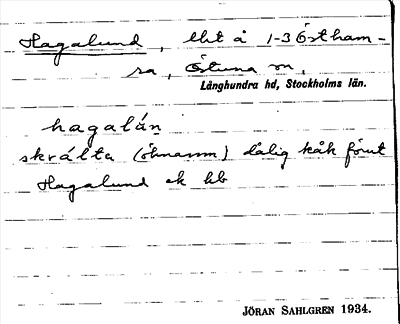 Hagalund, lht å 1-3 Östham-
sa, Östuna sn,
Långhundra hd, Stockholms län.
hagalán
skrálta (öknamn) dålig kåk förut
Hagalund ek bb
JÖRAN SAHLGREN 1934.